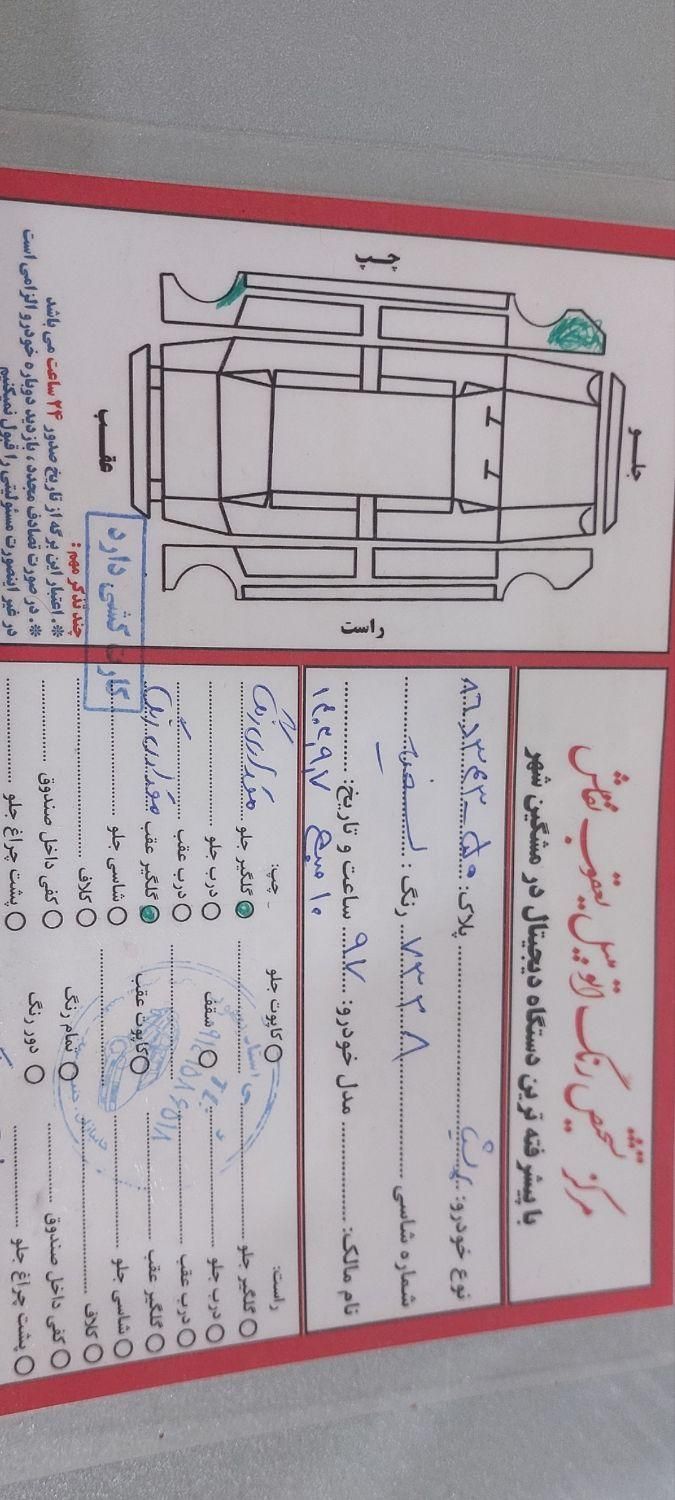 مرکز تشخیص رنگ اتومبیل یعقوب نقاش
با پیشرفته ترین دستگاه دیجیتال در مشگین شهر
نوع خودرو: پلاک:
شماره شاسی ۷۳۳۸ رنگ: سفید
نام مالک: مدل خودرو: ۹۷ ساعت و تاریخ:
۱۰ صبح
جلو
چپ
راست
عقب
کارت گشی دارد
چند تذکر مهم:
*. اعتبار این برگه از تاریخ صدور ۲۴ ساعت می باشد
*. در صورت تصادف مجدد، بازدید دوباره خودرو الزامی است
در غیر اینصورت مسئولیتی را قبول نمیکنیم
راست:
گلگیر جلو
درب جلو
درب عقب
گلگیر عقب
شاسی جلو
کلاف
کفی داخل صندوق
پشت چراغ جلو
کاپوت جلو
سقف
کاپوت عقب
تمام رنگ
دور رنگ
چپ:
گلگیر جلو
درب جلو
درب عقب
گلگیر عقب
شاسی جلو
کلاف
کفی داخل صندوق
پشت چراغ جلو